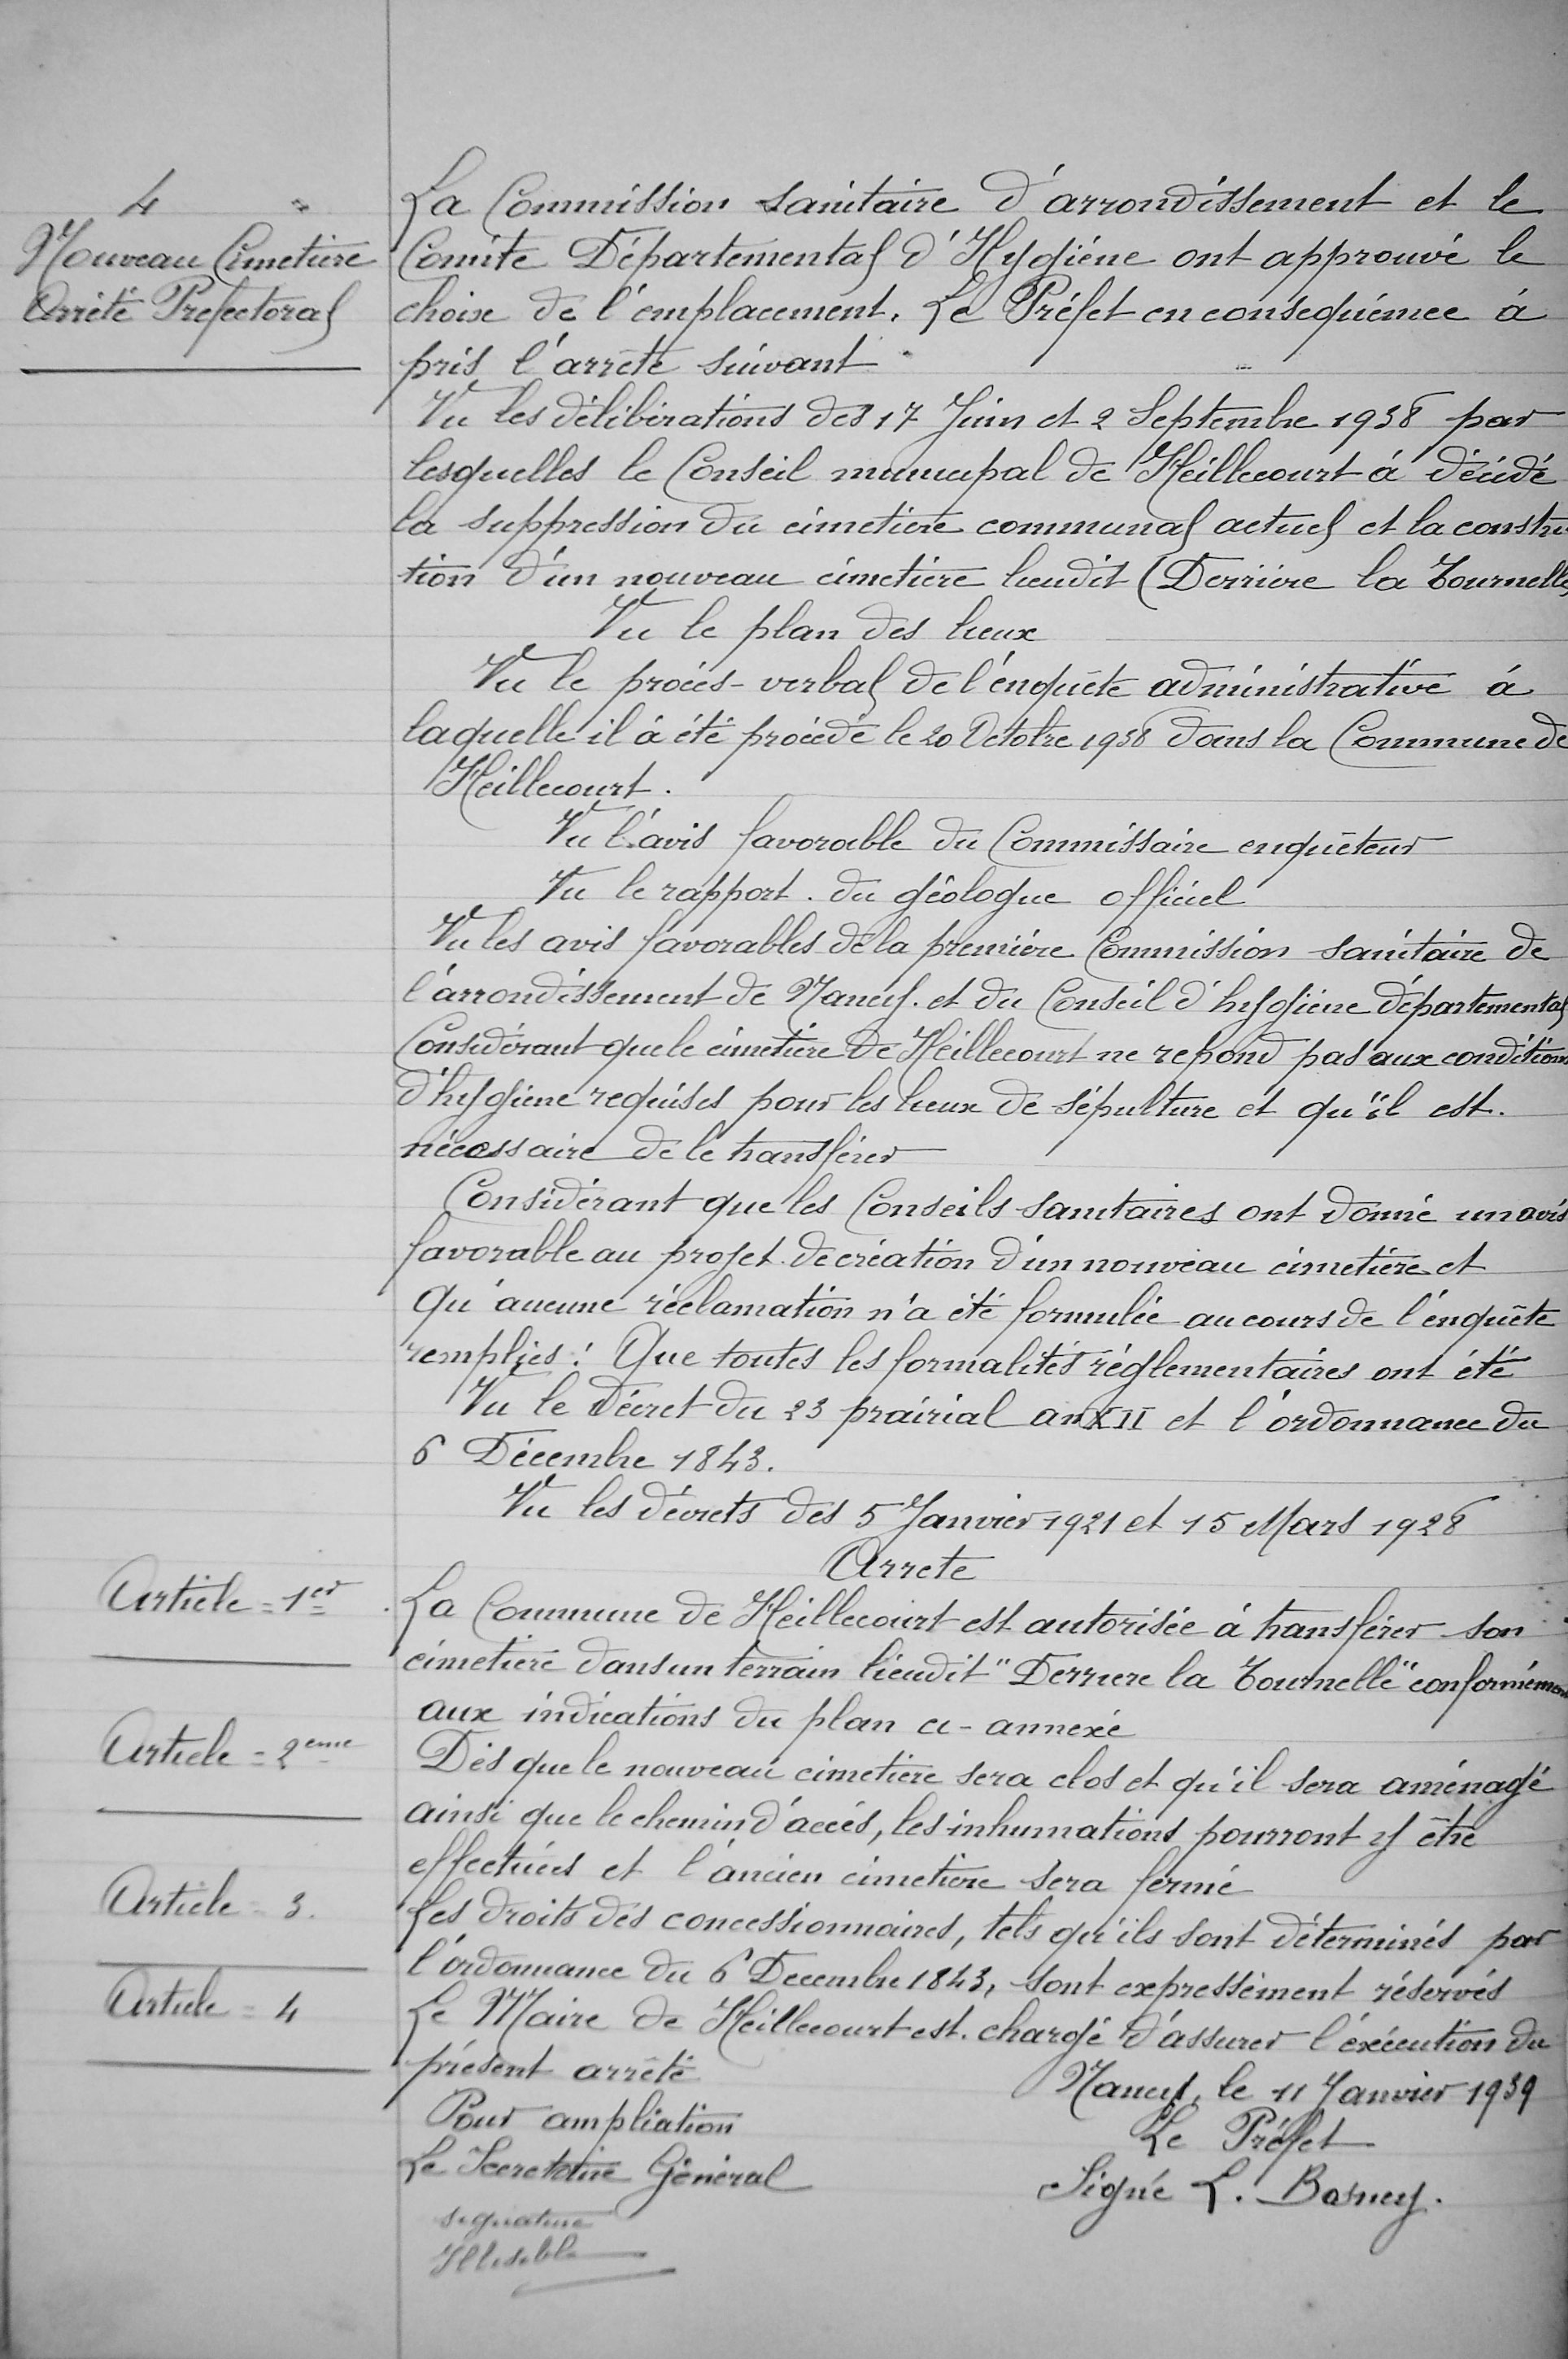 4 "
Nouveau Cimetière
Arrêté Prefectoral
La Commission sanitaire d'arrondissement et le
Comité Départemental d'Hygiène ont approuvé le
choix de l'emplacement. Le Préfet en conséquence à
pris l'arrêté suivant
Vu les délibérations des 17 Juin et 2 Septembre 1938 par
lesquelles le Conseil municipal de Heillecourt à décidé
la suppression du cimetière communal actuel et la constru
tion d'un nouveau cimetière lieudit (Derrière la Tournelle)
Vu le plan des lieux
Vu le procès-verbal de l'enquête administrative à
laquelle il à été procédé le 20 Octobre 1938 dans la Commune de
Heillecourt.
Vu l'avis favorable du Commissaire enquêteur
Vu le rapport. du géologue officiel
Vu les avis favorables de la première Commission sanitaire de
l'arrondissement de Nancy. et du Conseil d'hygiène départemental
Considérant que le cimetière de Heillecourt ne repond pas aux conditions
d'hygiène requises pour les lieux de sépulture et qu'il est.
nécessaire de le transférer
Considérant que les Conseils sanitaires ont donné un avis
favorable au projet de création d'un nouveau cimetière et
Qu'aucune réclamation n'a été formulée au cours de l'enquête
remplies: Que toutes les formalités réglementaires ont été
Vu le Décret du 23 prairial an XII et l'ordonnance du
6 Décembre 1843.
Vu les décrets des 5 Janvier 1921 et 15 Mars 1928
Arrete
Article = 1er
La Commune de Heillecourt est autorisée à transférer son
cimetière dans un terrain lieudit "Derriere la Tournelle" conformément
aux indications du plan ci-annexé
Article = 2eme
Dès que le nouveau cimetière sera clos et qu'il sera aménagé
ainsi que le chemin d'accès, les inhumations pourront y être
effectuées et l'ancien cimetière sera fermé
Article = 3.
Les droits des concessionnaires, tels qu'ils sont déterminés par
l'ordonnance du 6 Decembre 1843, sont expressément réservés
Article = 4
Le Maire de Heillecourt est. chargé d'assurer l'exécution du
présent arrêté
Nancy, le 11 Janvier 1939
Pour ampliation
Le Préfet
Le Secretaire Général
Signé L. Bosney.
signature
Illisible